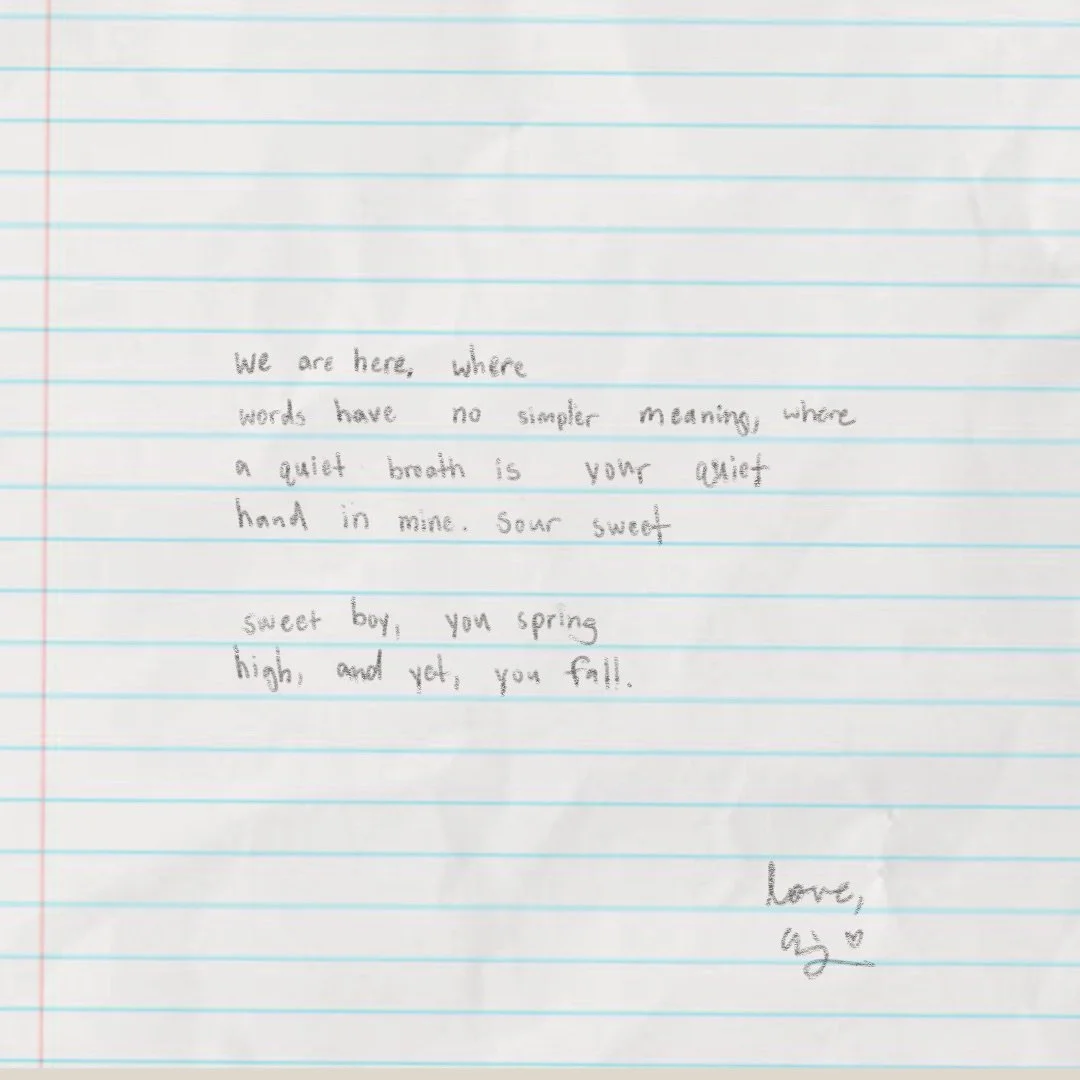 we are here, where
words have no simpler meaning, where
a quiet breath is your quiet
hand in mine. sour sweet
sweet boy, you spring
high, and yet, you fall.
love,
aj ♡